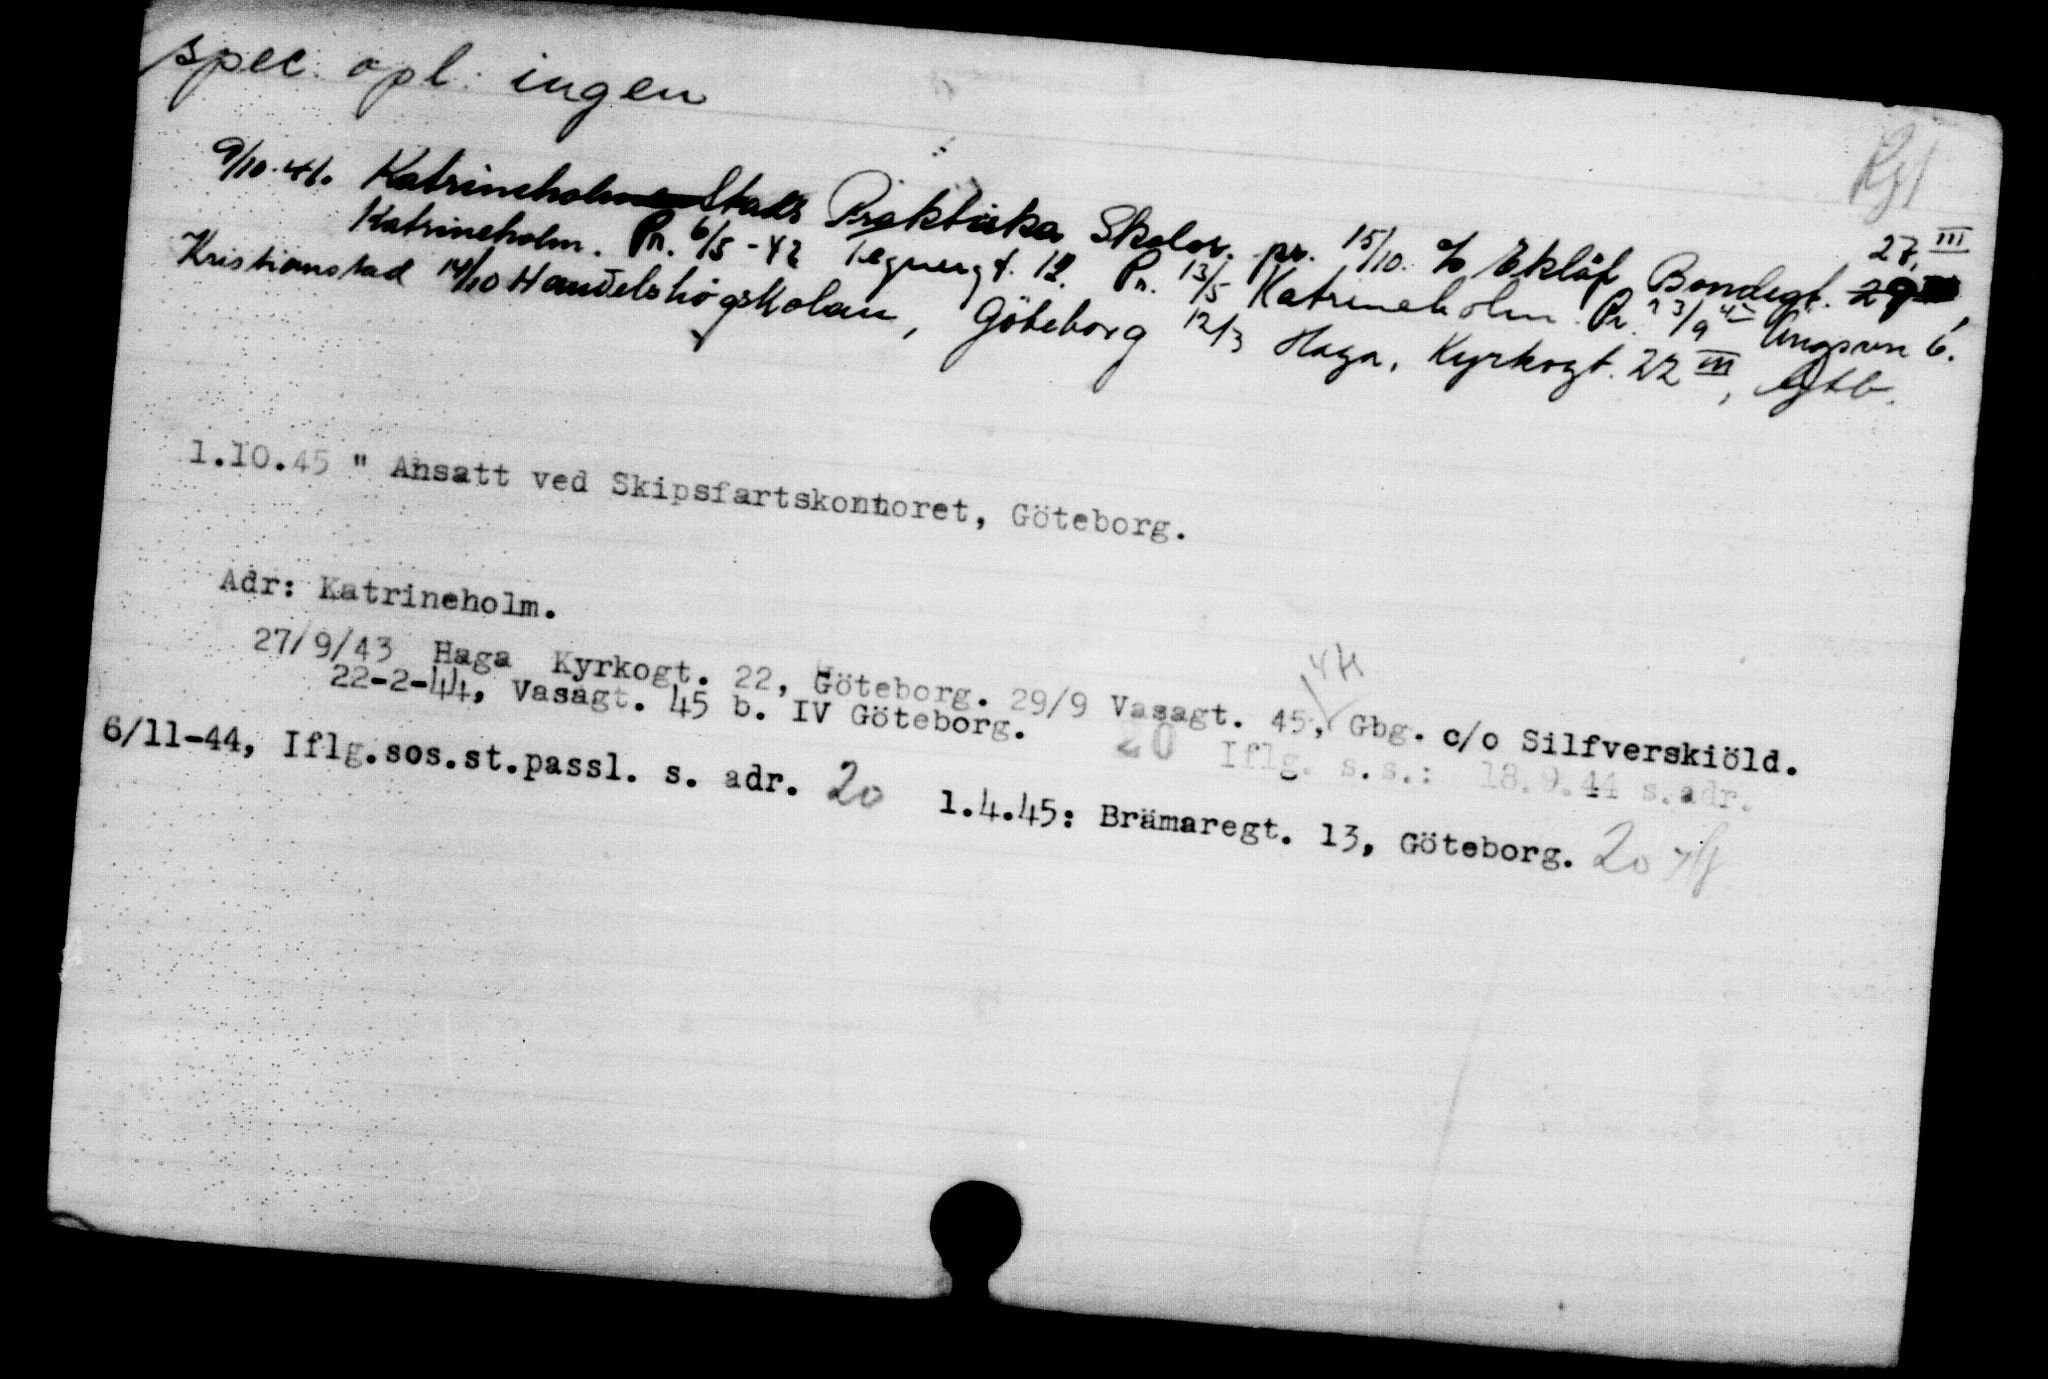 spec. opl: ingen
Kgl
9/10.41. Katrineholms Stads Praktiska Skolor. pr. 15/10. c/o Eklöf Bondegt. 29 27, III,
Katrineholm. Pr. 6/5-42 Tegnergt. 12. Pr. 13/5 Katrineholm. Pr. 23/9 42 Ungsvn 6.
Kristianstad 14/10 Handelshögskolan, Göteborg 12/3 Haga, Kyrkogt. 22 III, Gtb.
1.10.45 " Ansatt ved Skipsfartskontoret, Göteborg.
Adr: Katrineholm.
27/9/43 Haga Kyrkogt. 22, Göteborg. 29/9 Vasagt. 45, Gbg. c/o Silfverskiöld.
22-2-44, Vasagt. 45 b. IV Göteborg. 20 Iflg. s.s.: 18.9.44 s.adr.
6/11-44, Iflg.sos.st.passl. s. adr. 20 1.4.45: Brämaregt. 13, Göteborg. 20